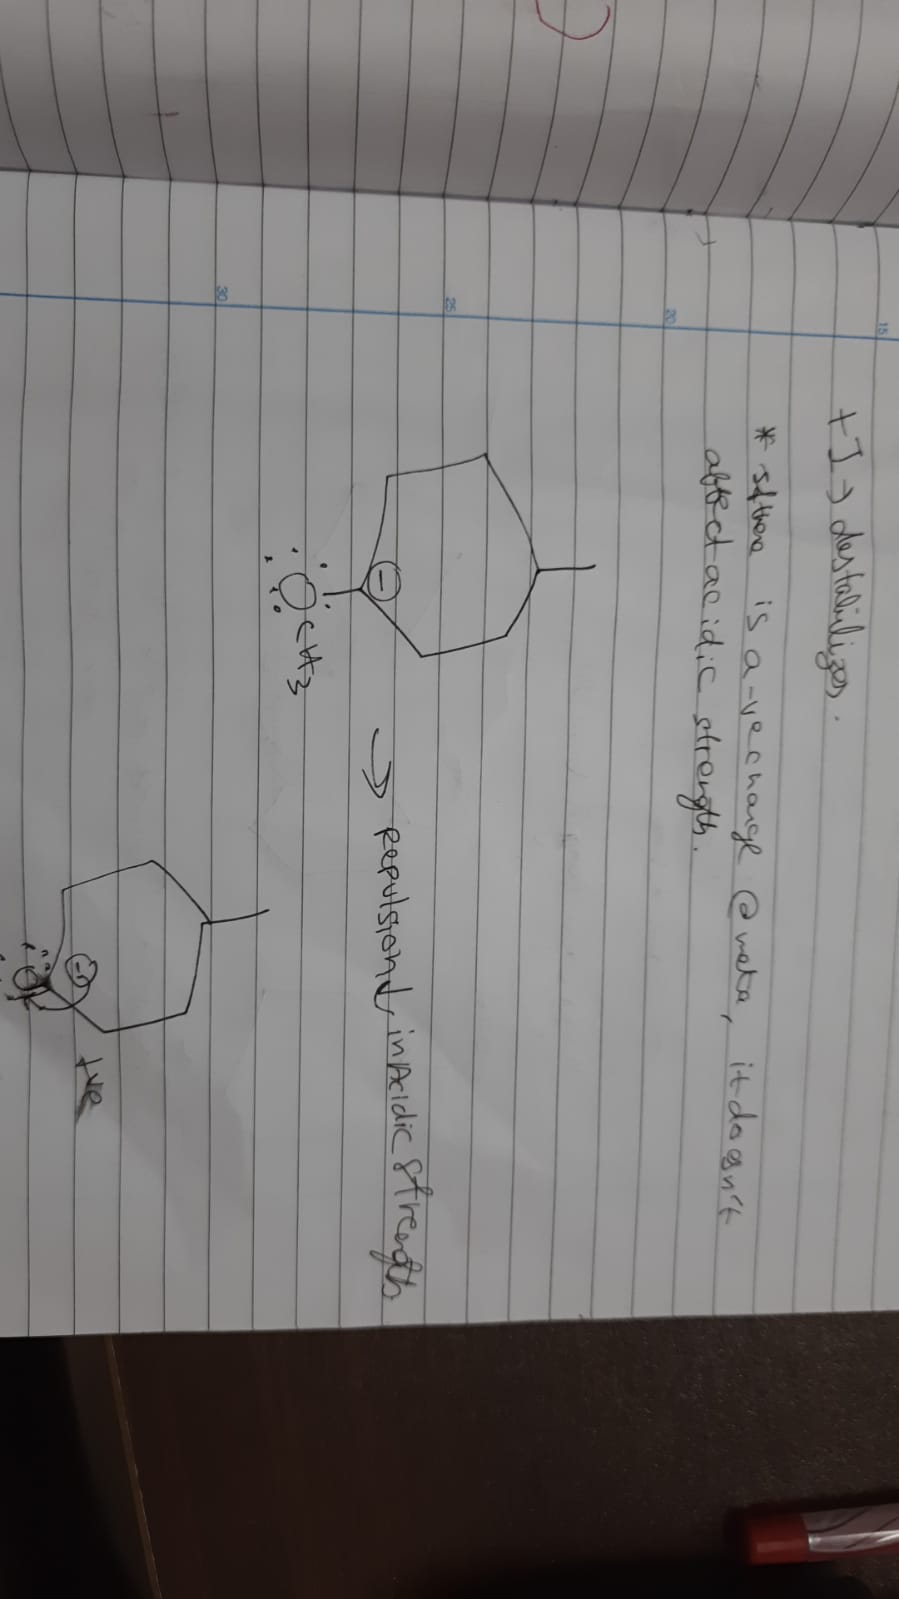 15
+I → destabilizes.
* If there is a -ve charge @ meta, it doesn't
affect acidic strength.
20
25
⊖
:OCH3
→ repulsion ↓ in Acidic strength
30
⊖
+ve